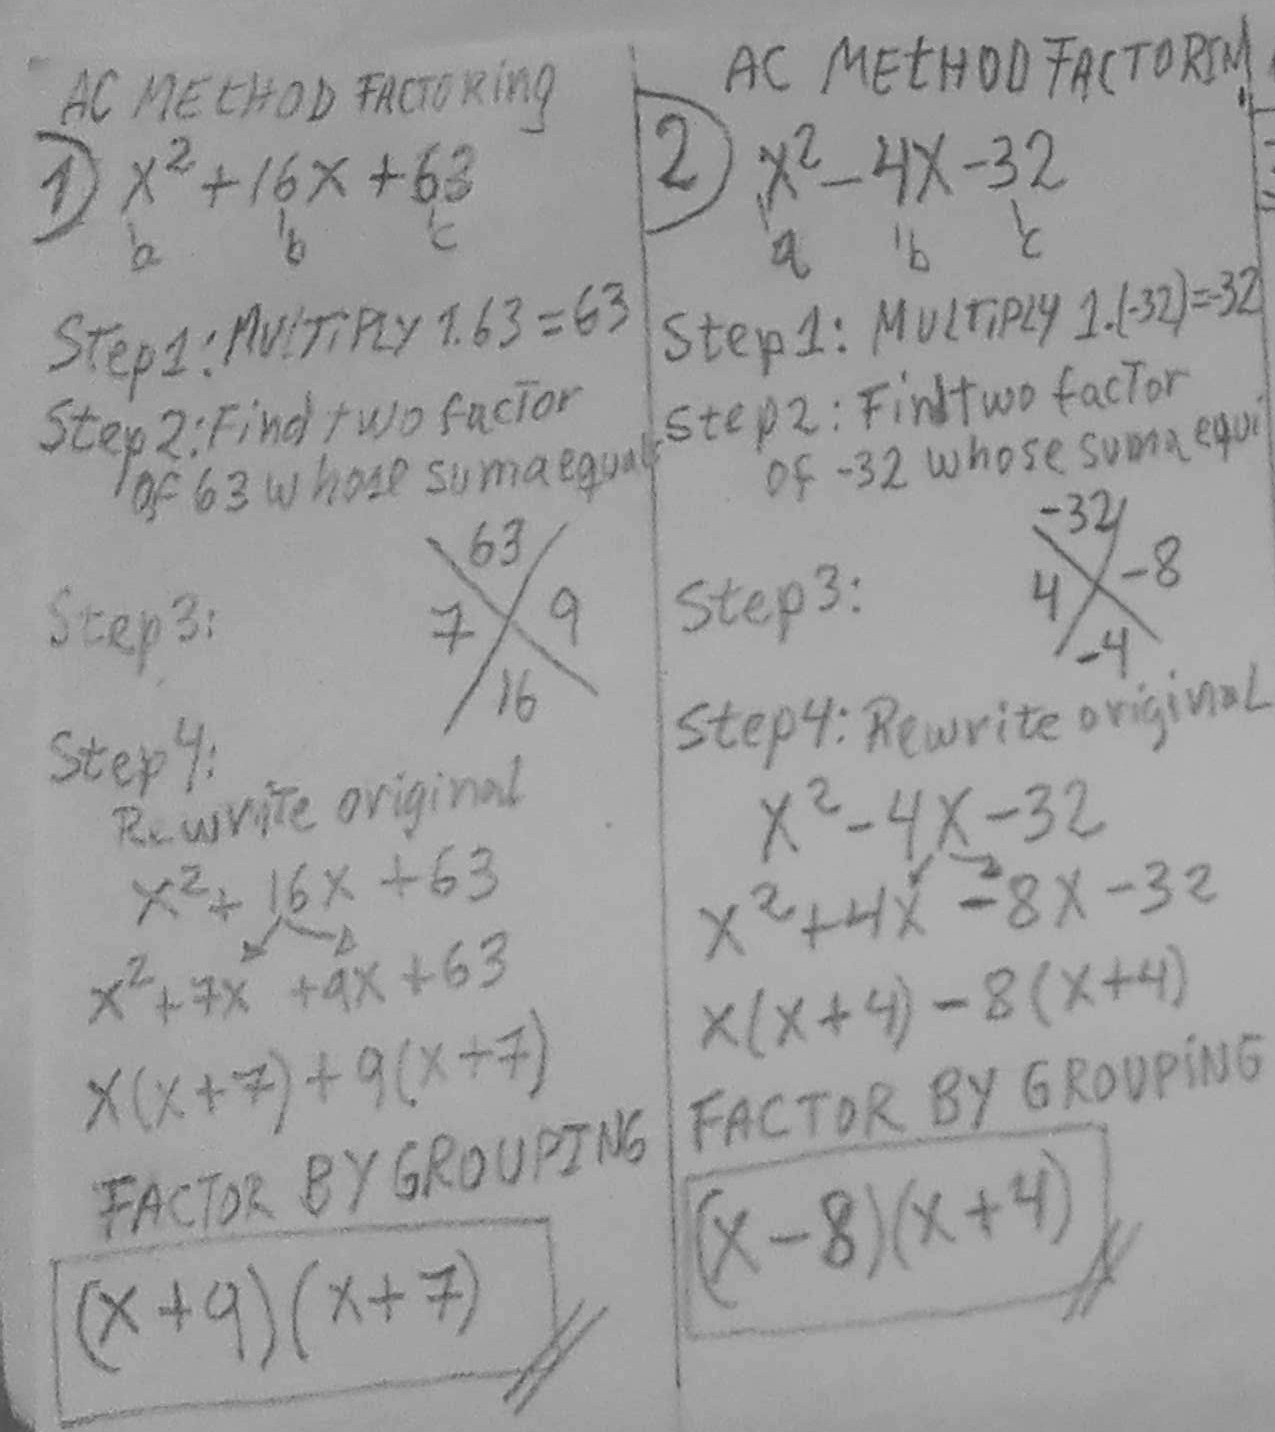 AC METHOD FACTORing
1) x² + 16x + 63
a b c
Step1: MULTIPLY 1.63 = 63
Step2: Find two factor
of 63 whose suma equals
63
Step3: 7 9
16
Step4:
Rewrite original
x² + 16x + 63
x² + 7x + 9x + 63
x(x+7) + 9(x+7)
FACTOR BY GROUPING
(x+9)(x+7)
AC METHOD FACTORIN
2) x² - 4x - 32
a b c
Step1: MULTIPLY 1.(-32)=-32
Step2: Find two factor
of -32 whose suma equ
-32
Step3: 4 -8
-4
Step4: Rewrite original
x² - 4x - 32
x² + 4x - 8x - 32
x(x+4) - 8(x+4)
FACTOR BY GROUPING
(x-8)(x+4)